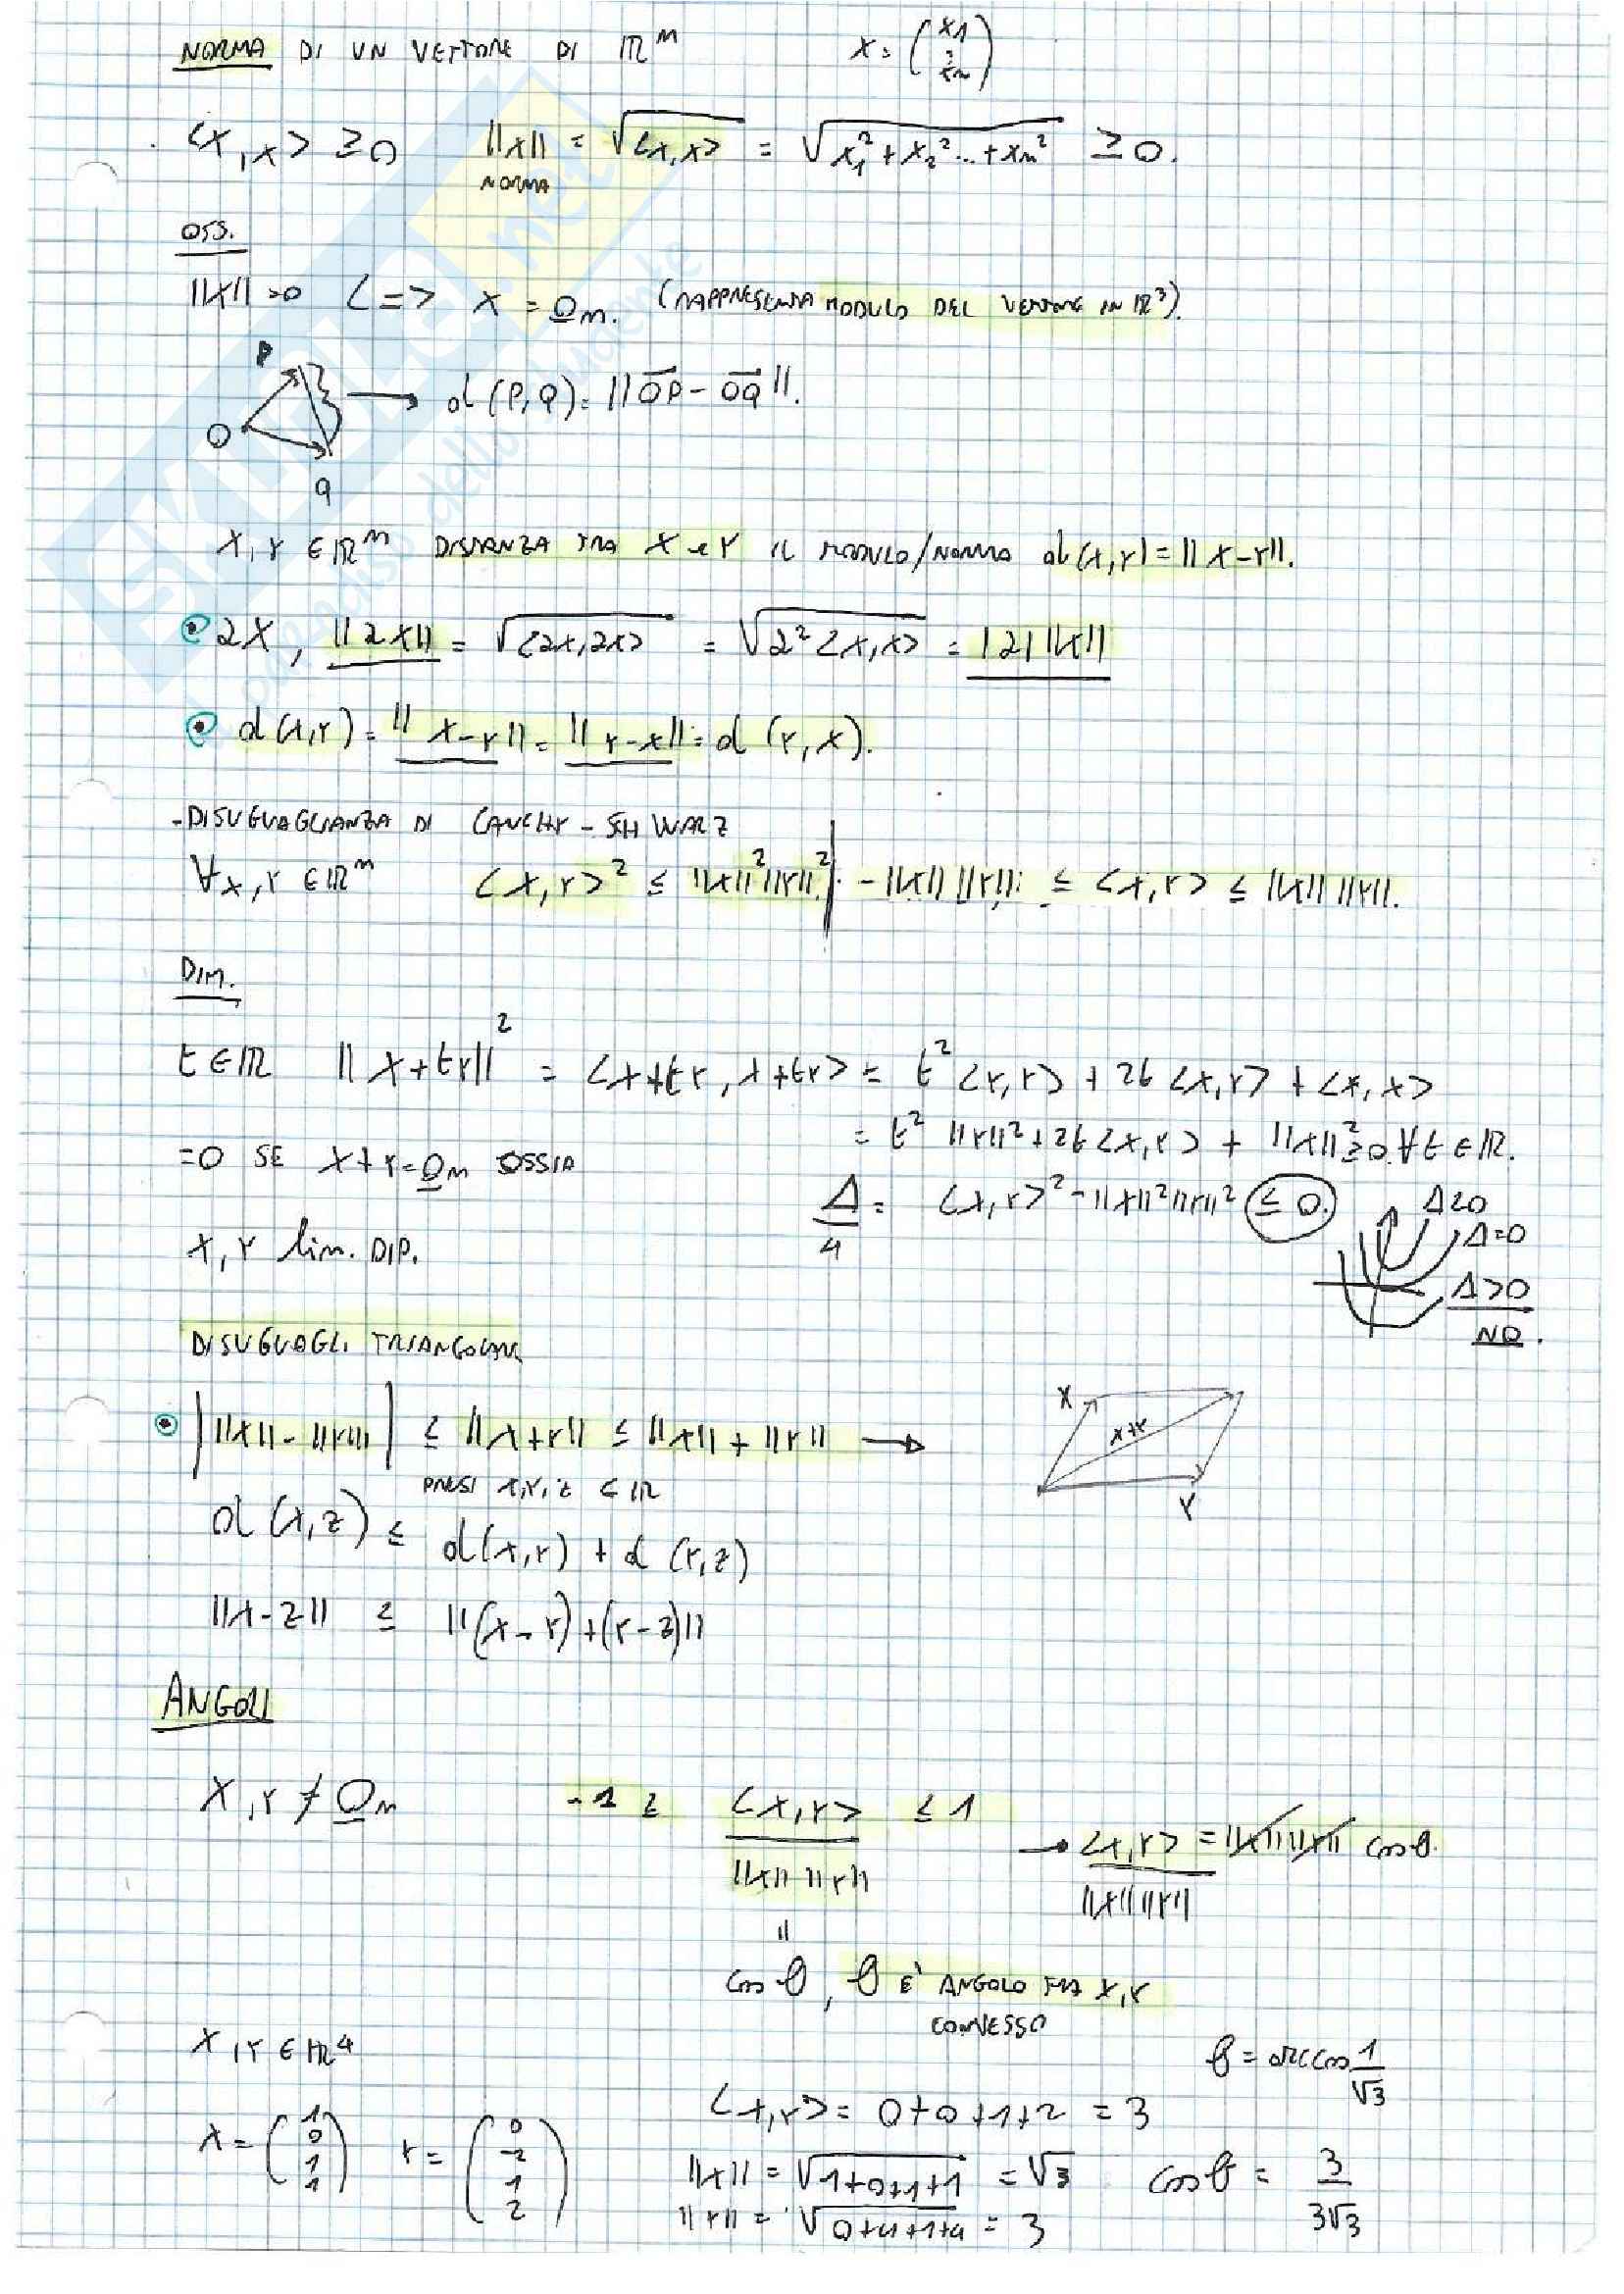 NORMA DI UN VETTORE DI ℝⁿ x = (x1 ⋮ xn)
<x,x> ≥ 0 ||x|| = √<x,x> = √x₁² + x₂² ... + xn² ≥ 0.
NORMA
OSS.
||x|| = 0 <=> x = 0n. (RAPPRESENTA MODULO DEL VETTORE IN ℝ³).
P
O → d(P,Q) = ||OP - OQ||.
Q
X,Y ∈ ℝⁿ DISTANZA TRA X e Y IL MODULO/NORMA d(x,y) = ||x-y||.
2x, ||2x|| = √<2x,2x> = √2²<x,x> = |2| ||x||
d(x,y) = ||x-y|| = ||y-x|| = d(y,x).
- DISUGUAGLIANZA DI CAUCHY - SHWARZ
∀x,y ∈ ℝⁿ <x,y>² ≤ ||x||² ||y||² | -||x|| ||y|| ≤ <x,y> ≤ ||x|| ||y||.
DIM.
t ∈ ℝ ||x+ty||² = <x+ty, x+ty> = t² <y,y> + 2t <x,y> + <x,x>
= t² ||y||² + 2t<x,y> + ||x||² ≥ 0 ∀t ∈ ℝ.
=0 SE x+y=0n OSSIA
x,y lin. DIP.
Δ/4 = <x,y>² - ||x||² ||y||² ≤ 0.
Δ<0
Δ=0
Δ>0
NO.
DISUGUAGLI. TRIANGOLARE
| ||x|| - ||y|| | ≤ ||x+y|| ≤ ||x|| + ||y|| →
X x+y Y
PRESI x,y,z ∈ ℝ
d(x,z) ≤ d(x,y) + d(y,z)
||x-z|| ≤ ||(x-y)+(y-z)||
ANGOLI
X,Y ≠ 0n -1 ≤ <x,y> / ||x|| ||y|| ≤ 1
→ <x,y> / ||x|| ||y|| = ||x|| ||y|| cos θ.
=
cos θ, θ E' ANGOLO TRA x,y
CONVESSO
x,y ∈ ℝ⁴
θ = arccos 1/√3
<x,y> = 0+0+1+2 = 3
x = (1 0 1 1) y = (0 -2 1 2)
||x|| = √1+0+1+1 = √3 cos θ = 3/3√3
||y|| = √0+4+1+4 = 3
SKUOLA.net
paradiso dello studente